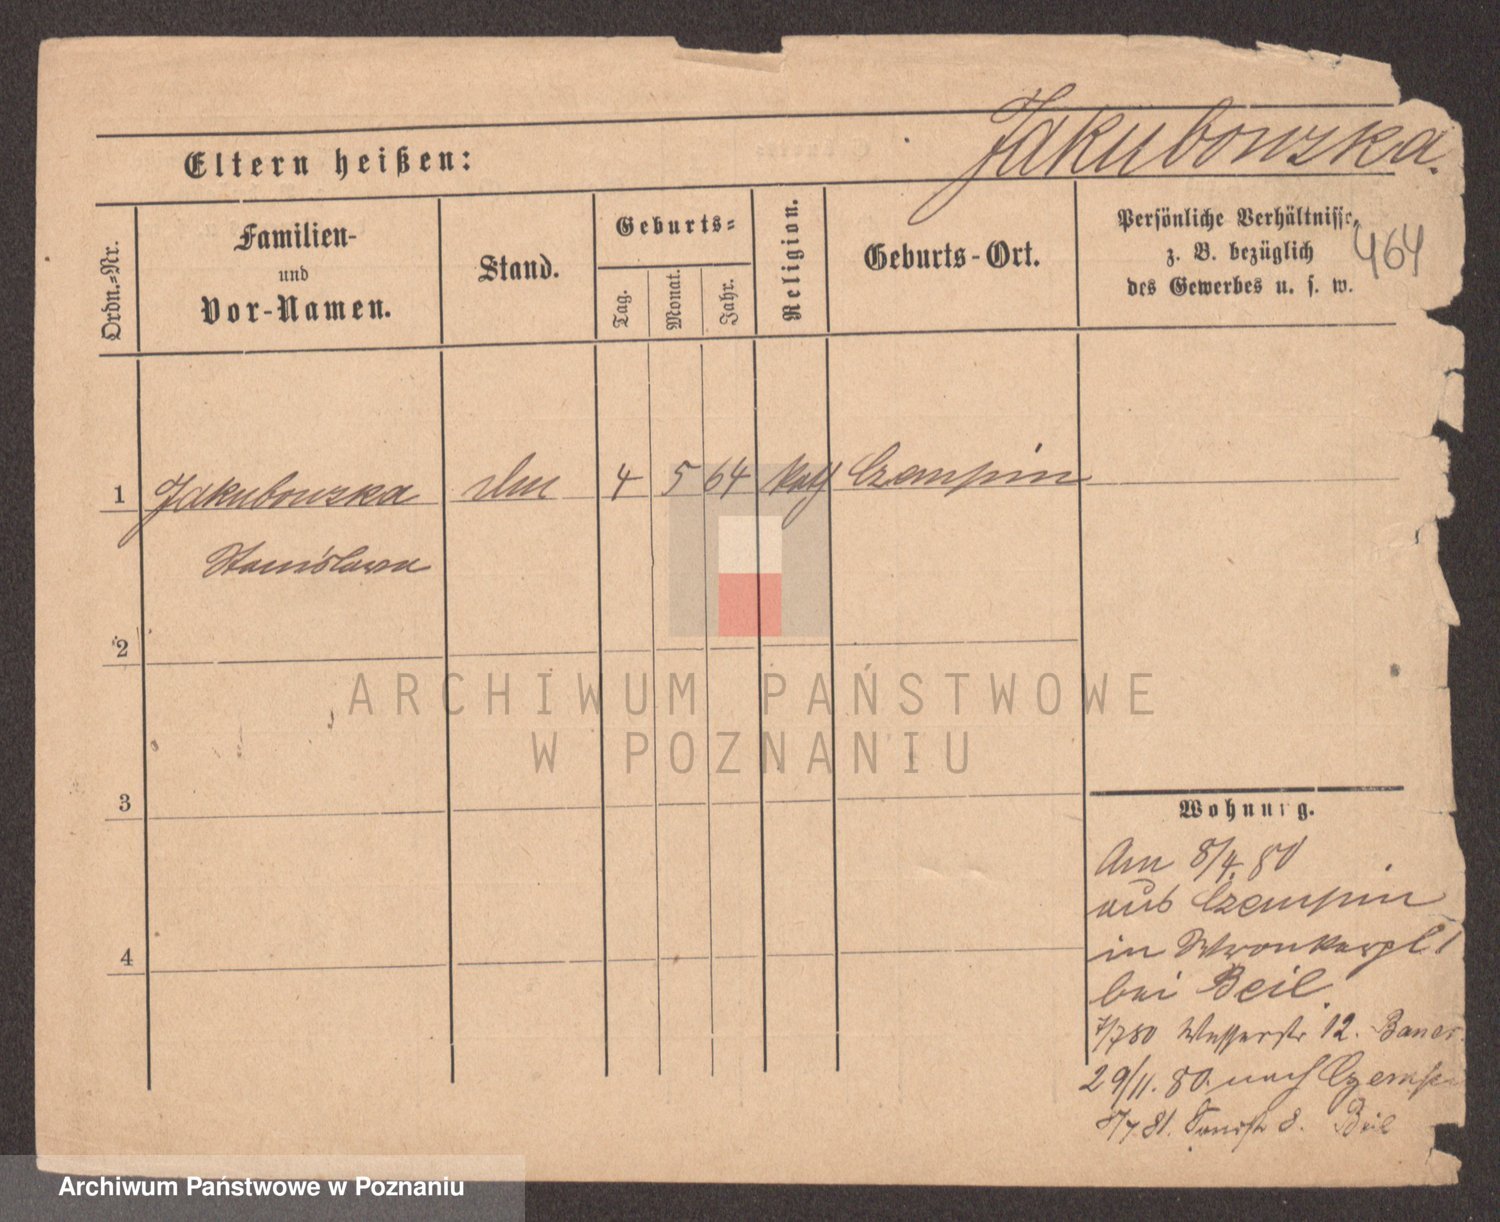 Jakubowska.
Eltern heißen:
Ordn.-Nr.
Familien-
und
Vor-Namen.
Stand.
Geburts-
Tag.
Monat.
Jahr.
Religion.
Geburts-Ort.
Persönliche Verhältnisse,
z. B. bezüglich
des Gewerbes u. s. w.
464
1 Jakubowska 4 5 64 kath Czempin
Stanislawa
2
3
4
Wohnung.
Am 8/4. 80
aus Czempin
in Wronkerpl 1
bei Beil.
7/7 80 Wasserstr 12.
29/11. 80. nach Czempin
81. 8. Beil
ARCHIWUM PAŃSTWOWE
W POZNANIU
Archiwum Państwowe w Poznaniu